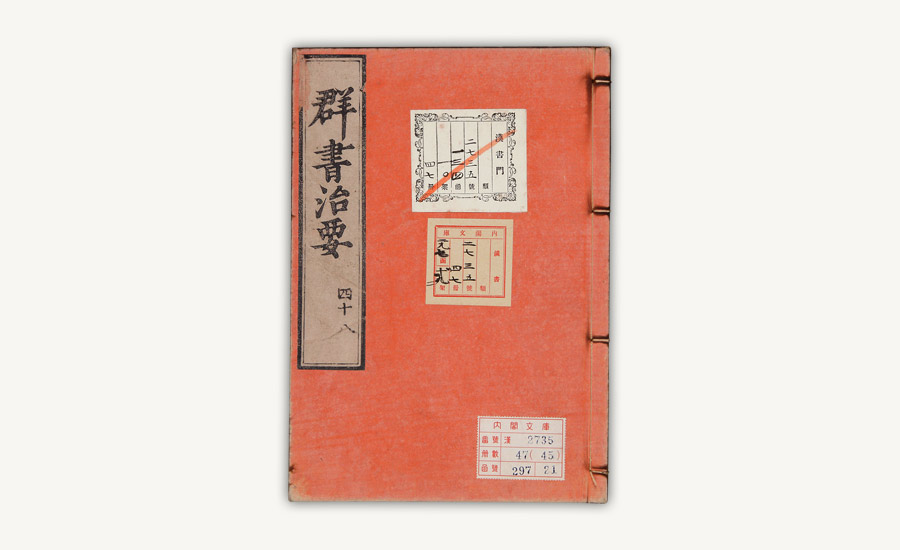 群書治要
四十八
漢書門
二七三五
一三四
一〇
四七
類
號
函
架
冊
内閣文庫
漢書
二七三五
四七
類
號
冊
架
内閣文庫
番號 漢 2735
冊數 47(45)
函號 297 21